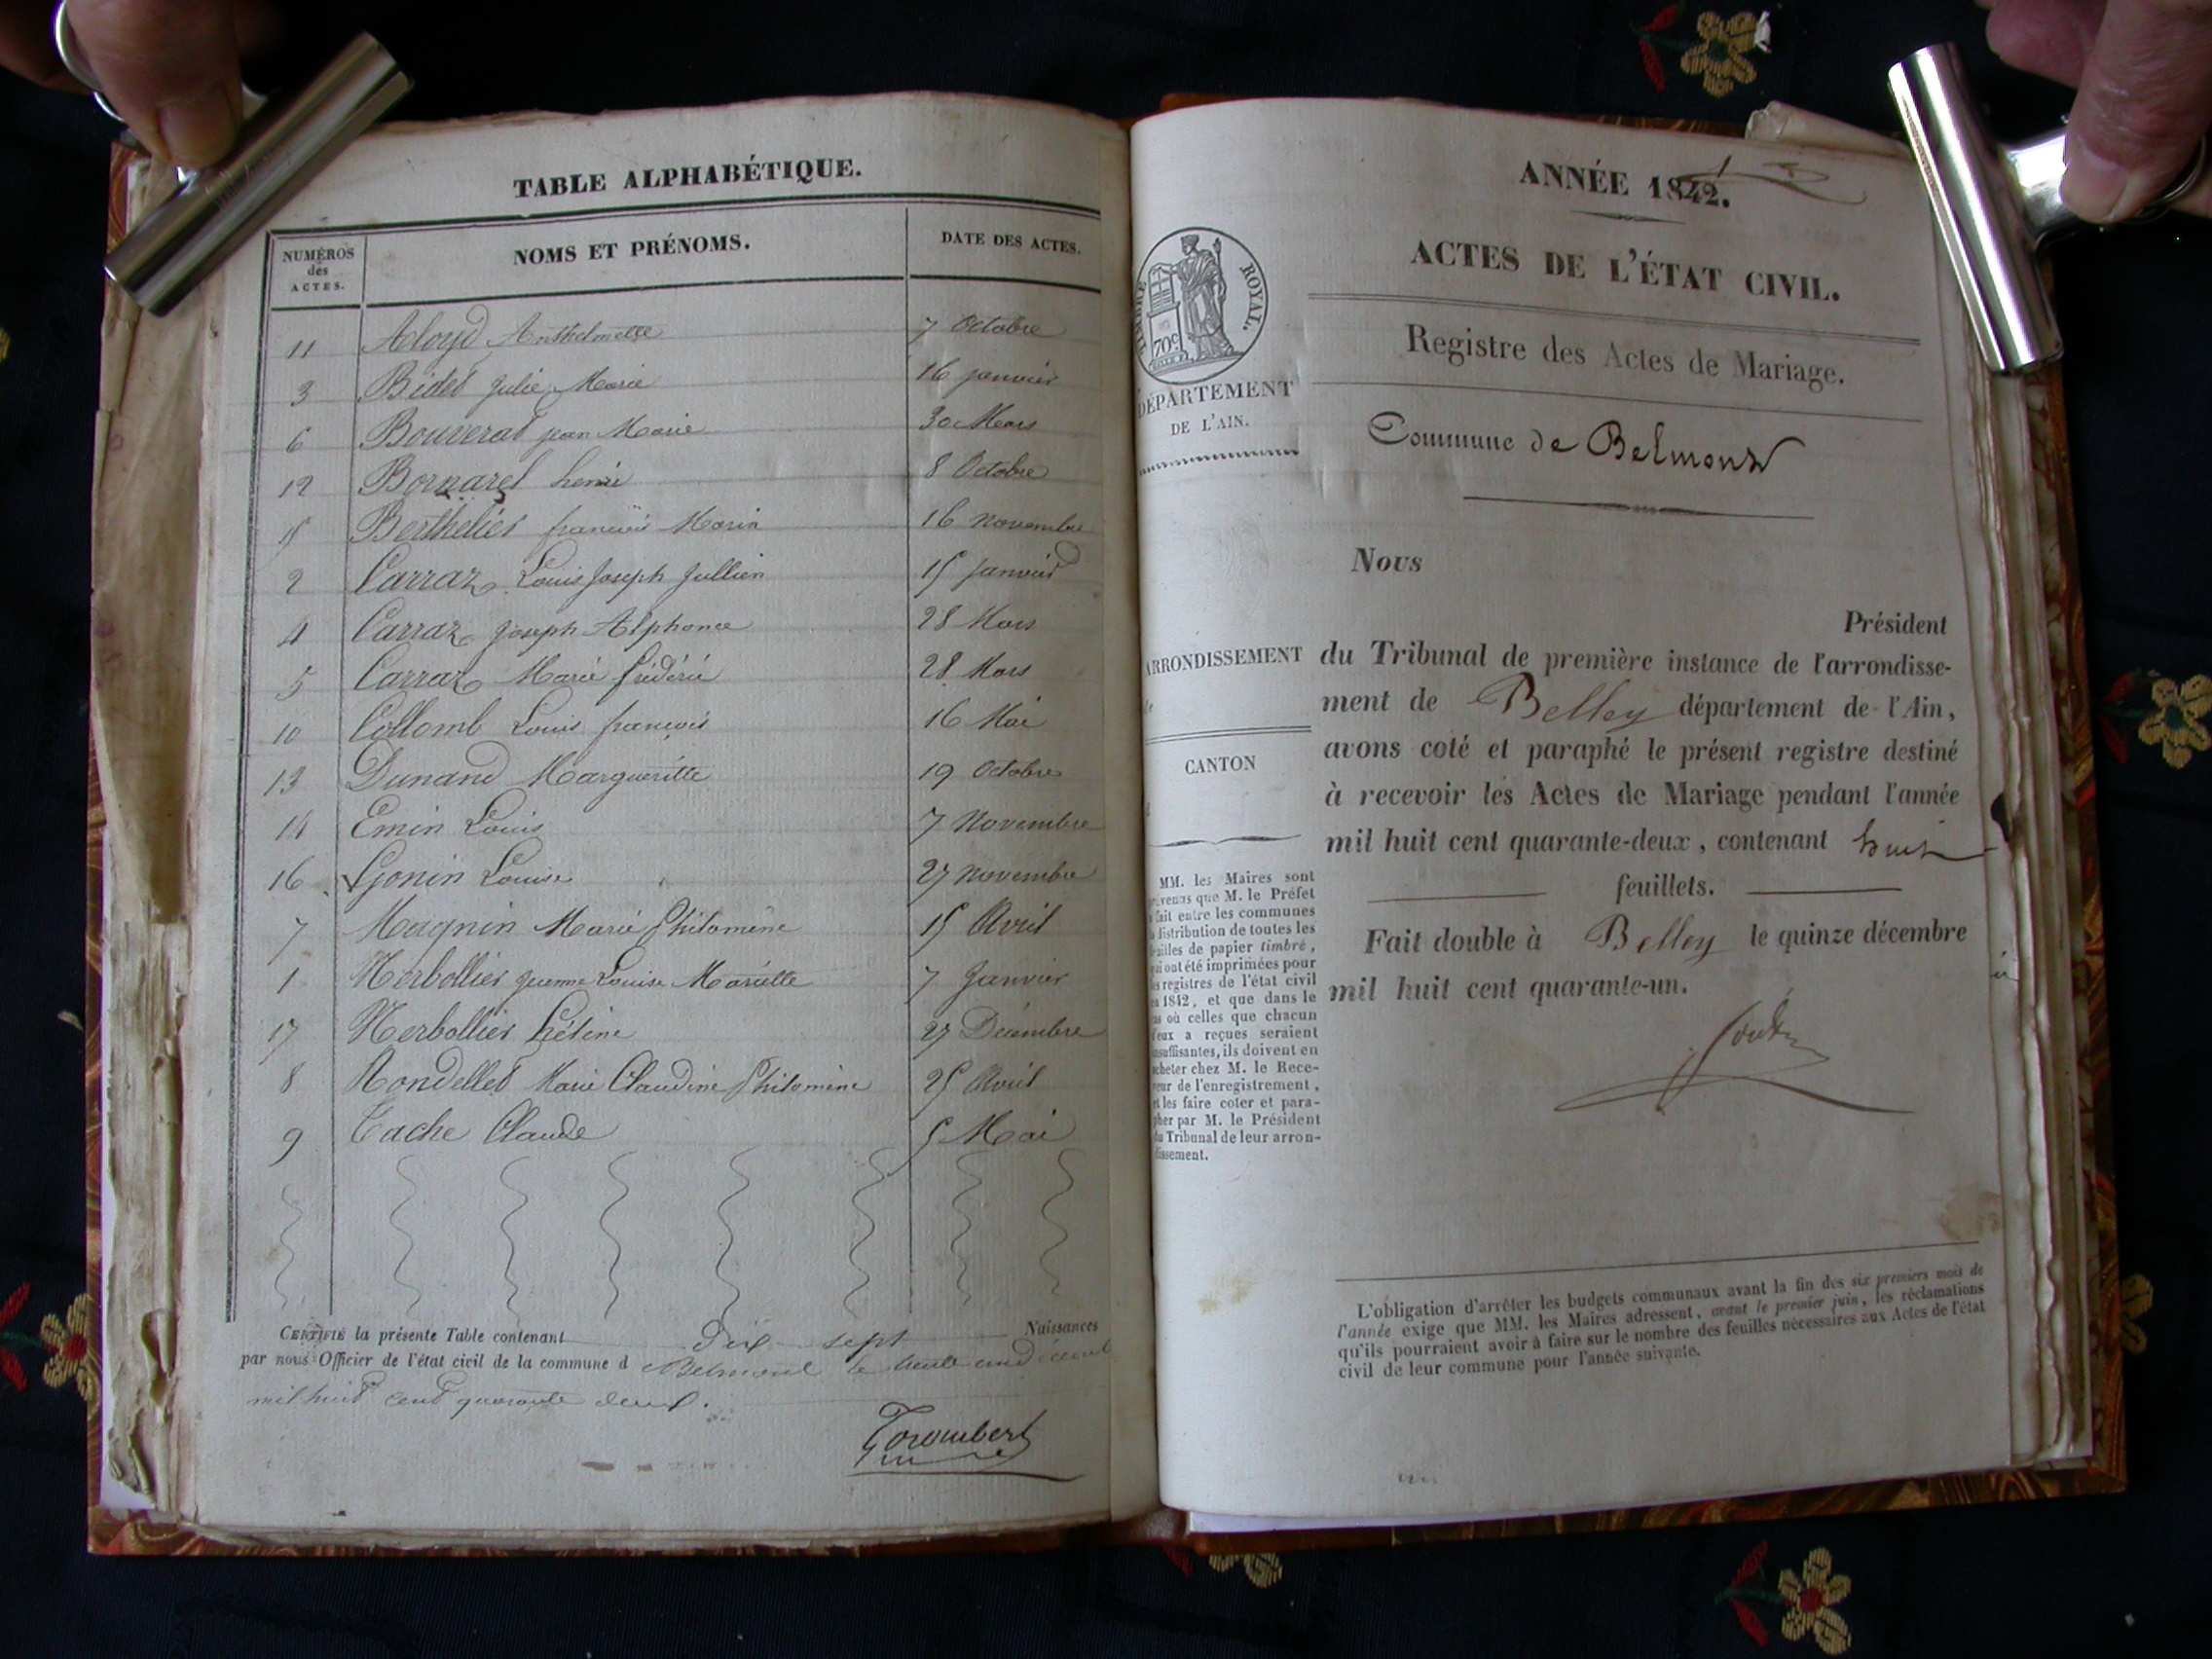 TABLE ALPHABÉTIQUE.
NUMÉROS des ACTES. NOMS ET PRÉNOMS. DATE DES ACTES.
11 Aloyd Anthelmette 7 Octobre
3 Bidet Julie Marie 16 janvier
6 Bouverat jean Marie 30 Mars
12 Bornarel henri 8 Octobre
15 Berthelier francois Marin 16 novembre
2 Carraz Louis Joseph Jullien 15 Janvier
4 Carraz Joseph Alphonce 28 Mars
5 Carraz Marie frédéric 28 Mars
10 Collomb Louis françois 16 Mai
13 Dunand Margueritte 19 Octobre
14 Emin Louis 7 Novembre
16 Gonin Louise 27 Novembre
7 Magnin Marie Philomène 15 Avril
1 Merbollier Louise Mariette 7 Janvier
17 Merbollier 27 Décembre
8 Mondellet Marie Claudine Philomène 25 Avril
9 Tache Claude 5 Mai
CERTIFIÉ la présente Table contenant dix-sept Naissances
par nous Officier de l'état civil de la commune d Belmont le trente un décemb
mil huit cent quarante deux.
ANNÉE 1842.
ACTES DE L'ÉTAT CIVIL.
Registre des Actes de Mariage.
Commune de Belmont
TIMBRE ROYAL.
70c
DÉPARTEMENT
DE L'AIN.
ARRONDISSEMENT
CANTON
MM. les Maires sont
prévenus que M. le Préfet
fait entre les communes
distribution de toutes les
feuilles de papier timbré,
qui ont été imprimées pour
les registres de l'état civil
1842, et que dans le
cas où celles que chacun
d'eux a reçues seraient
insuffisantes, ils doivent en
acheter chez M. le Rece-
veur de l'enregistrement,
et les faire coter et para-
pher par M. le Président
du Tribunal de leur arron-
dissement.
Nous
Président
du Tribunal de première instance de l'arrondisse-
ment de Belley département de l'Ain,
avons coté et paraphé le présent registre destiné
à recevoir les Actes de Mariage pendant l'année
mil huit cent quarante-deux, contenant huit
feuillets.
Fait double à Belley le quinze décembre
mil huit cent quarante-un.
L'obligation d'arrêter les budgets communaux avant la fin des six premiers mois de
l'année exige que MM. les Maires adressent, avant le premier juin, les réclamations
qu'ils pourraient avoir à faire sur le nombre des feuilles nécessaires aux Actes de l'état
civil de leur commune pour l'année suivante.